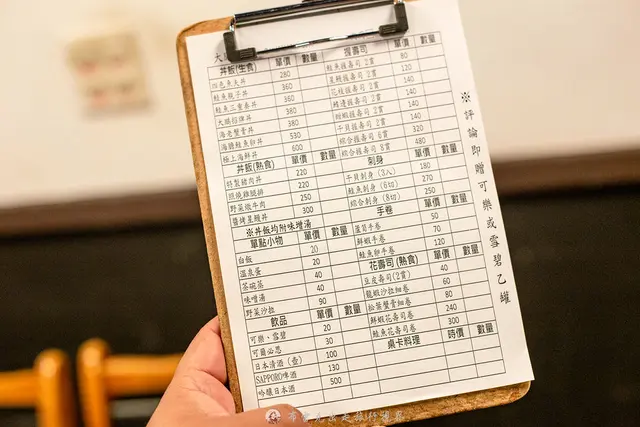 丼飯(生食) 單價 數量
四色魚夫丼 280
鮭魚親子丼 360
鮭魚三重奏丼 360
大鵬招牌丼 380
海老蟹膏丼 380
海膽鮭魚卵丼 530
極上海鮮丼 600
丼飯(熟食) 單價 數量
特製豬肉丼 220
照燒雞腿排 220
野菜嫩牛肉 250
醬烤星鰻丼 300
※丼飯均附味增湯
單點小物 單價 數量
白飯 20
溫泉蛋 20
茶碗蒸 40
味增湯 40
野菜沙拉 90
飲品 單價 數量
可樂、雪碧 20
可爾必思 30
日本清酒(壺) 100
SAPPORO啤酒 130
吟釀日本酒 500
握壽司 單價 數量
鮭魚握壽司 2貫 80
星鰻握壽司 2貫 120
花枝握壽司 2貫 140
鰭邊握壽司 2貫 140
甜蝦握壽司 2貫 140
干貝握壽司 2貫 140
綜合握壽司 6貫 320
綜合握壽司 8貫 480
刺身 單價 數量
干貝刺身(3入) 180
鮭魚刺身(6切) 270
綜合刺身(8切) 250
手卷 單價 數量
蘆筍手卷 50
鮮蝦手卷 70
鮭魚卵手卷 120
花壽司(熟食) 單價 數量
豆皮壽司(2貫) 40
龍蝦沙拉細卷 60
松葉蟹膏細卷 80
鮮蝦花壽司卷 240
鮭魚花壽司卷 300
桌卡料理 時價 數量
※評論即贈可樂或雪碧乙罐